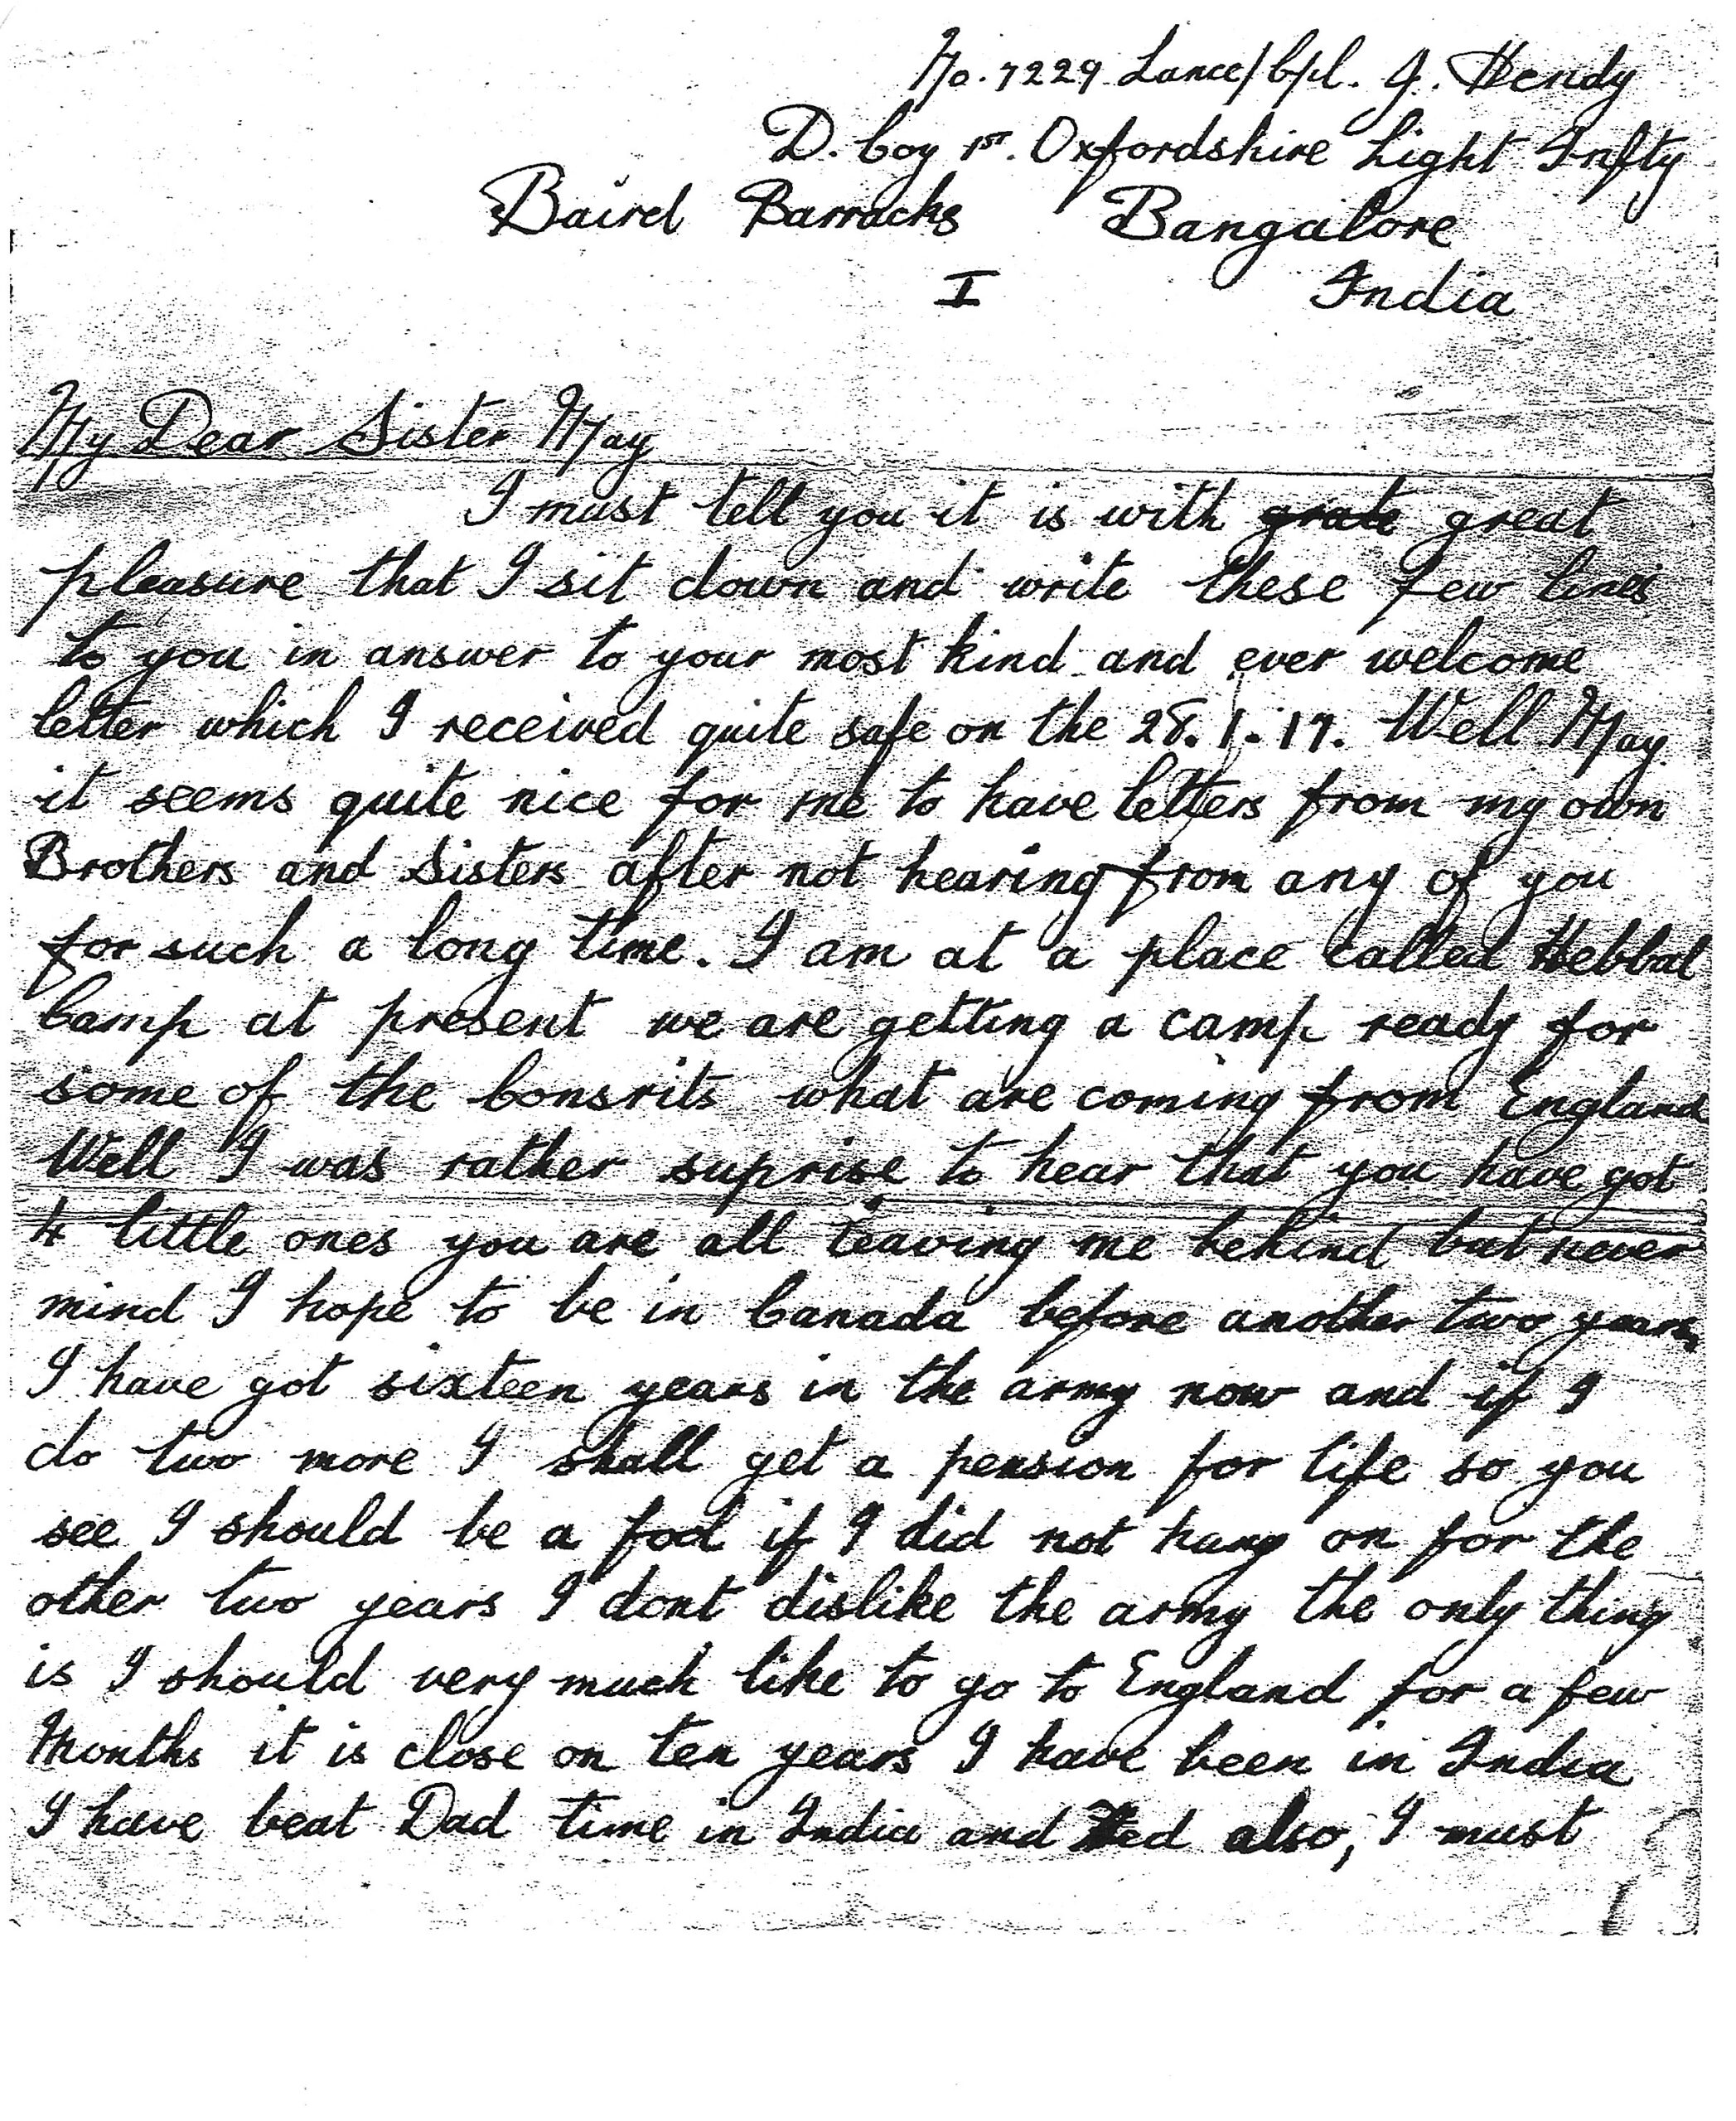 No. 7229 Lance/Cpl. J. Hendy
D. Coy 1st. Oxfordshire Light Infty
Baird Barracks Bangalore
I India
My Dear Sister May
I must tell you it is with grate great
pleasure that I sit down and write these few lines
to you in answer to your most kind and ever welcome
letter which I received quite safe on the 28.1.17. Well May
it seems quite nice for me to have letters from my own
Brothers and Sisters after not hearing from any of you
for such a long time. I am at a place called Hebbal
Camp at present we are getting a camp ready for
some of the Consrits what are coming from England
Well I was rather suprise to hear that you have got
4 little ones you are all leaving me behind but never
mind I hope to be in Canada before another two years,
I have got sixteen years in the army now and if I
do two more I shall get a pension for life so you
see I should be a fool if I did not hang on for the
other two years I dont dislike the army the only thing
is I should very much like to go to England for a few
Months it is close on ten years I have been in India
I have beat Dad time in India and Ted also, I must